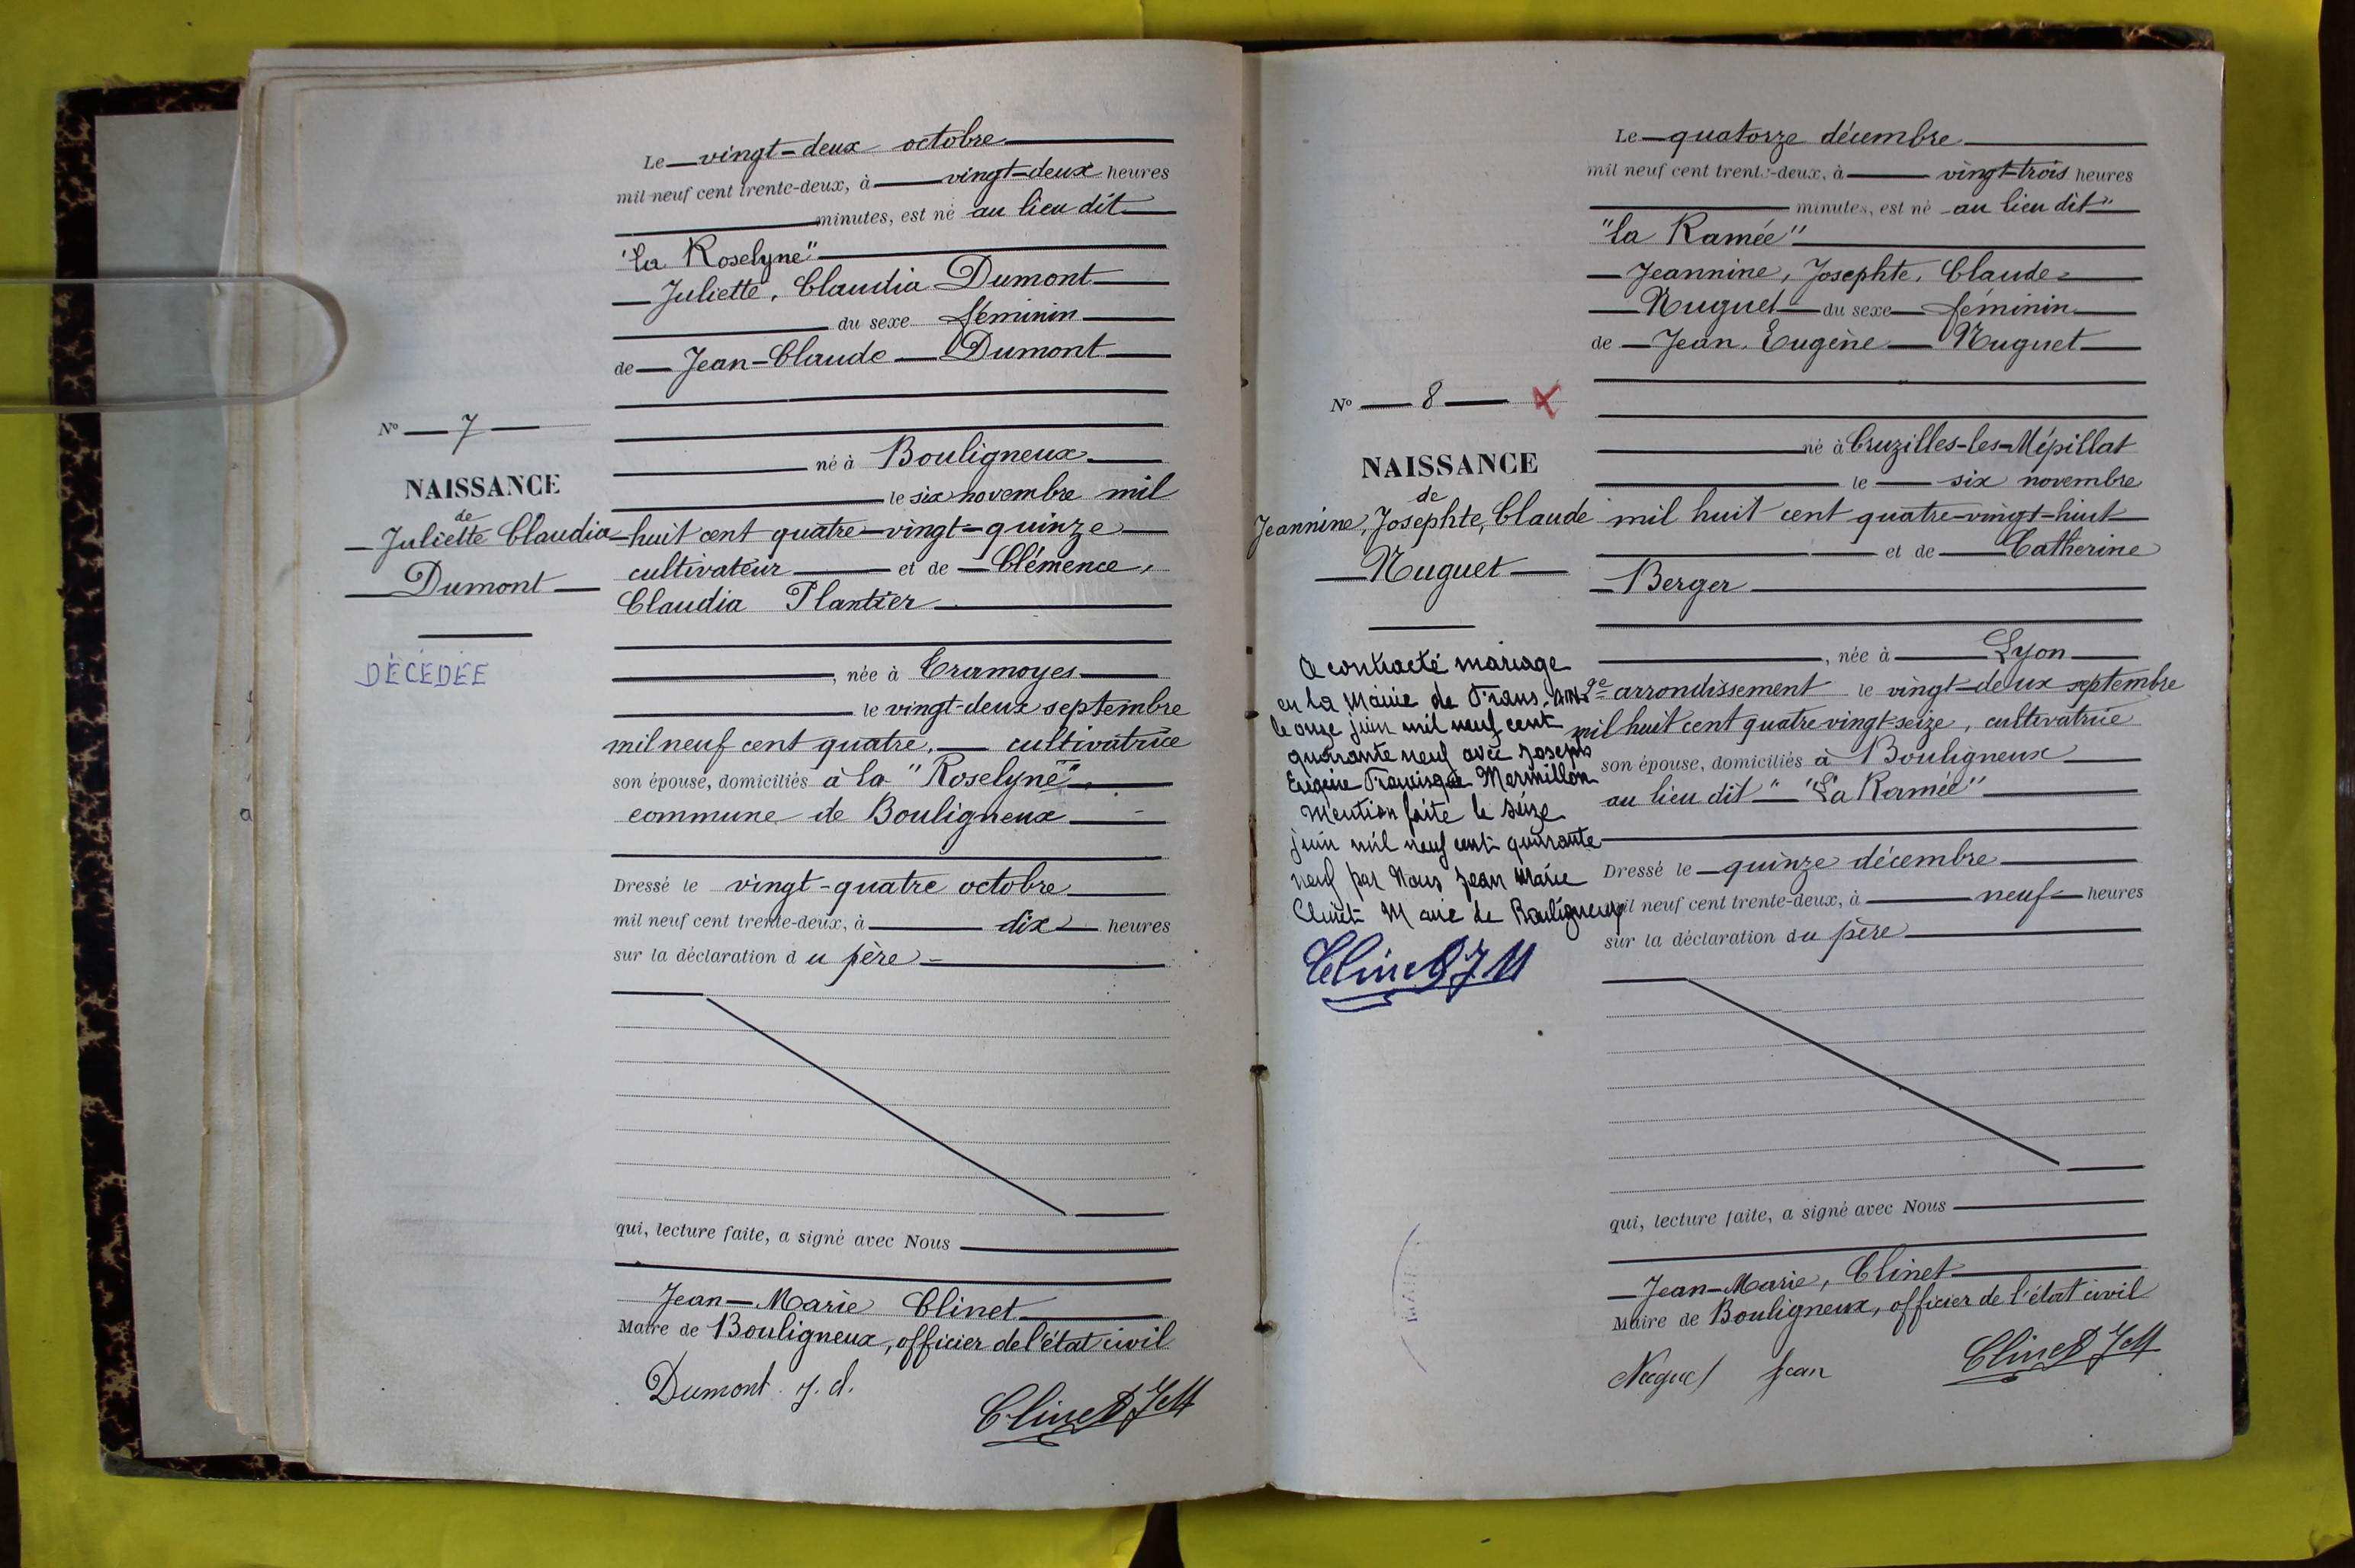 Le vingt-deux octobre
mil neuf cent trente-deux, à vingt-deux heures
minutes, est né au lieu dit
"la Roselyne"
Juliette, Claudia Dumont
du sexe féminin
de Jean-Claude Dumont
né à Bouligneux
le six novembre mil
huit cent quatre-vingt-quinze
cultivateur et de Clémence,
Claudia Plantier
, née à Cramoyes
le vingt-deux septembre
mil neuf cent quatre, cultivatrice
son épouse, domiciliés à la "Roselyne"
commune de Bouligneux
Dressé le vingt-quatre octobre
mil neuf cent trente-deux, à dix heures
sur la déclaration du père
qui, lecture faite, a signé avec Nous
Jean-Marie Clinet
Maire de Bouligneux, officier de l'état civil
Dumont J. d.
Clinet JM
N° 7
NAISSANCE
de
Juliette Claudia
Dumont
DÉCÉDÉE
Le quatorze décembre
mil neuf cent trente-deux, à vingt-trois heures
minutes, est né au lieu dit
"la Ramée"
Jeannine, Josephte, Claude
Nuguet du sexe féminin
de Jean, Eugène Nuguet
né à Cruzilles-les-Mépillat
le six novembre
mil huit cent quatre-vingt-huit
et de Catherine
Berger
, née à Lyon
arrondissement le vingt-deux septembre
mil huit cent quatre vingt-seize, cultivatrice
son épouse, domiciliés à Bouligneux
au lieu dit "La Ramée"
Dressé le quinze décembre
mil neuf cent trente-deux, à neuf heures
sur la déclaration du père
qui, lecture faite, a signé avec Nous
Jean-Marie, Clinet
Maire de Bouligneux, officier de l'état civil
Nuguet Jean
Clinet JM
N° 8
NAISSANCE
de
Jeannine, Josephte, Claude
Nuguet
A contracté mariage
en la Mairie de Frans, Ain
le onze juin mil neuf cent
quarante neuf avec Joseph
Eugène Francisque Mermillon
Mention faite le seize
juin mil neuf cent quarante
neuf par Nous Jean Marie
Clinet Maire de Bouligneux
Clinet JM